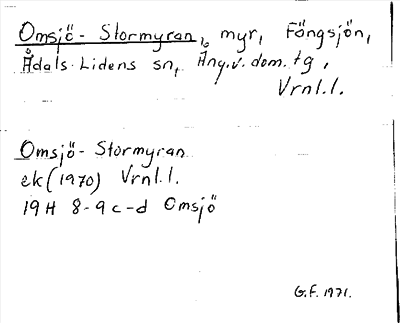 Omsjö-Stormyran, myr, Fängsjön,
Ådals-Lidens sn, Ång.v. dom. tg,
Vrnl.l.
Omsjö-Stormyran
ek (1970) Vrnl.l.
19H 8-9 c-d Omsjö
G.F. 1971.